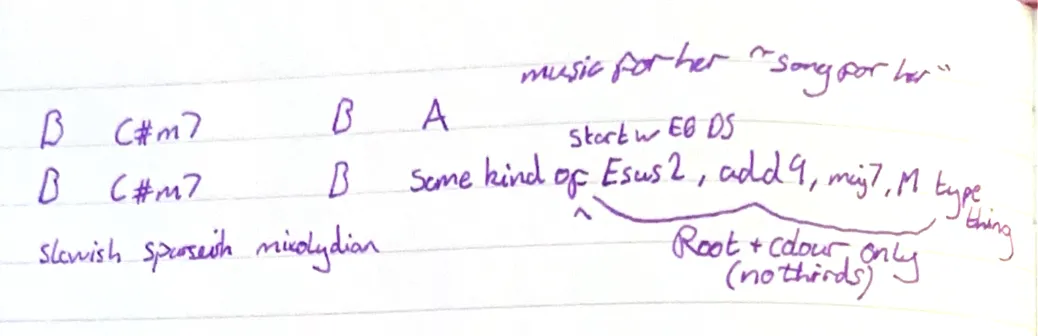 music for her ~ "song for her"
B C#m7 B A
start w E6 D5
B C#m7 B some kind of Esus2, add9, maj7, M type thing
^
slowish sparseish mixolydian
Root + colour only
(no thirds)